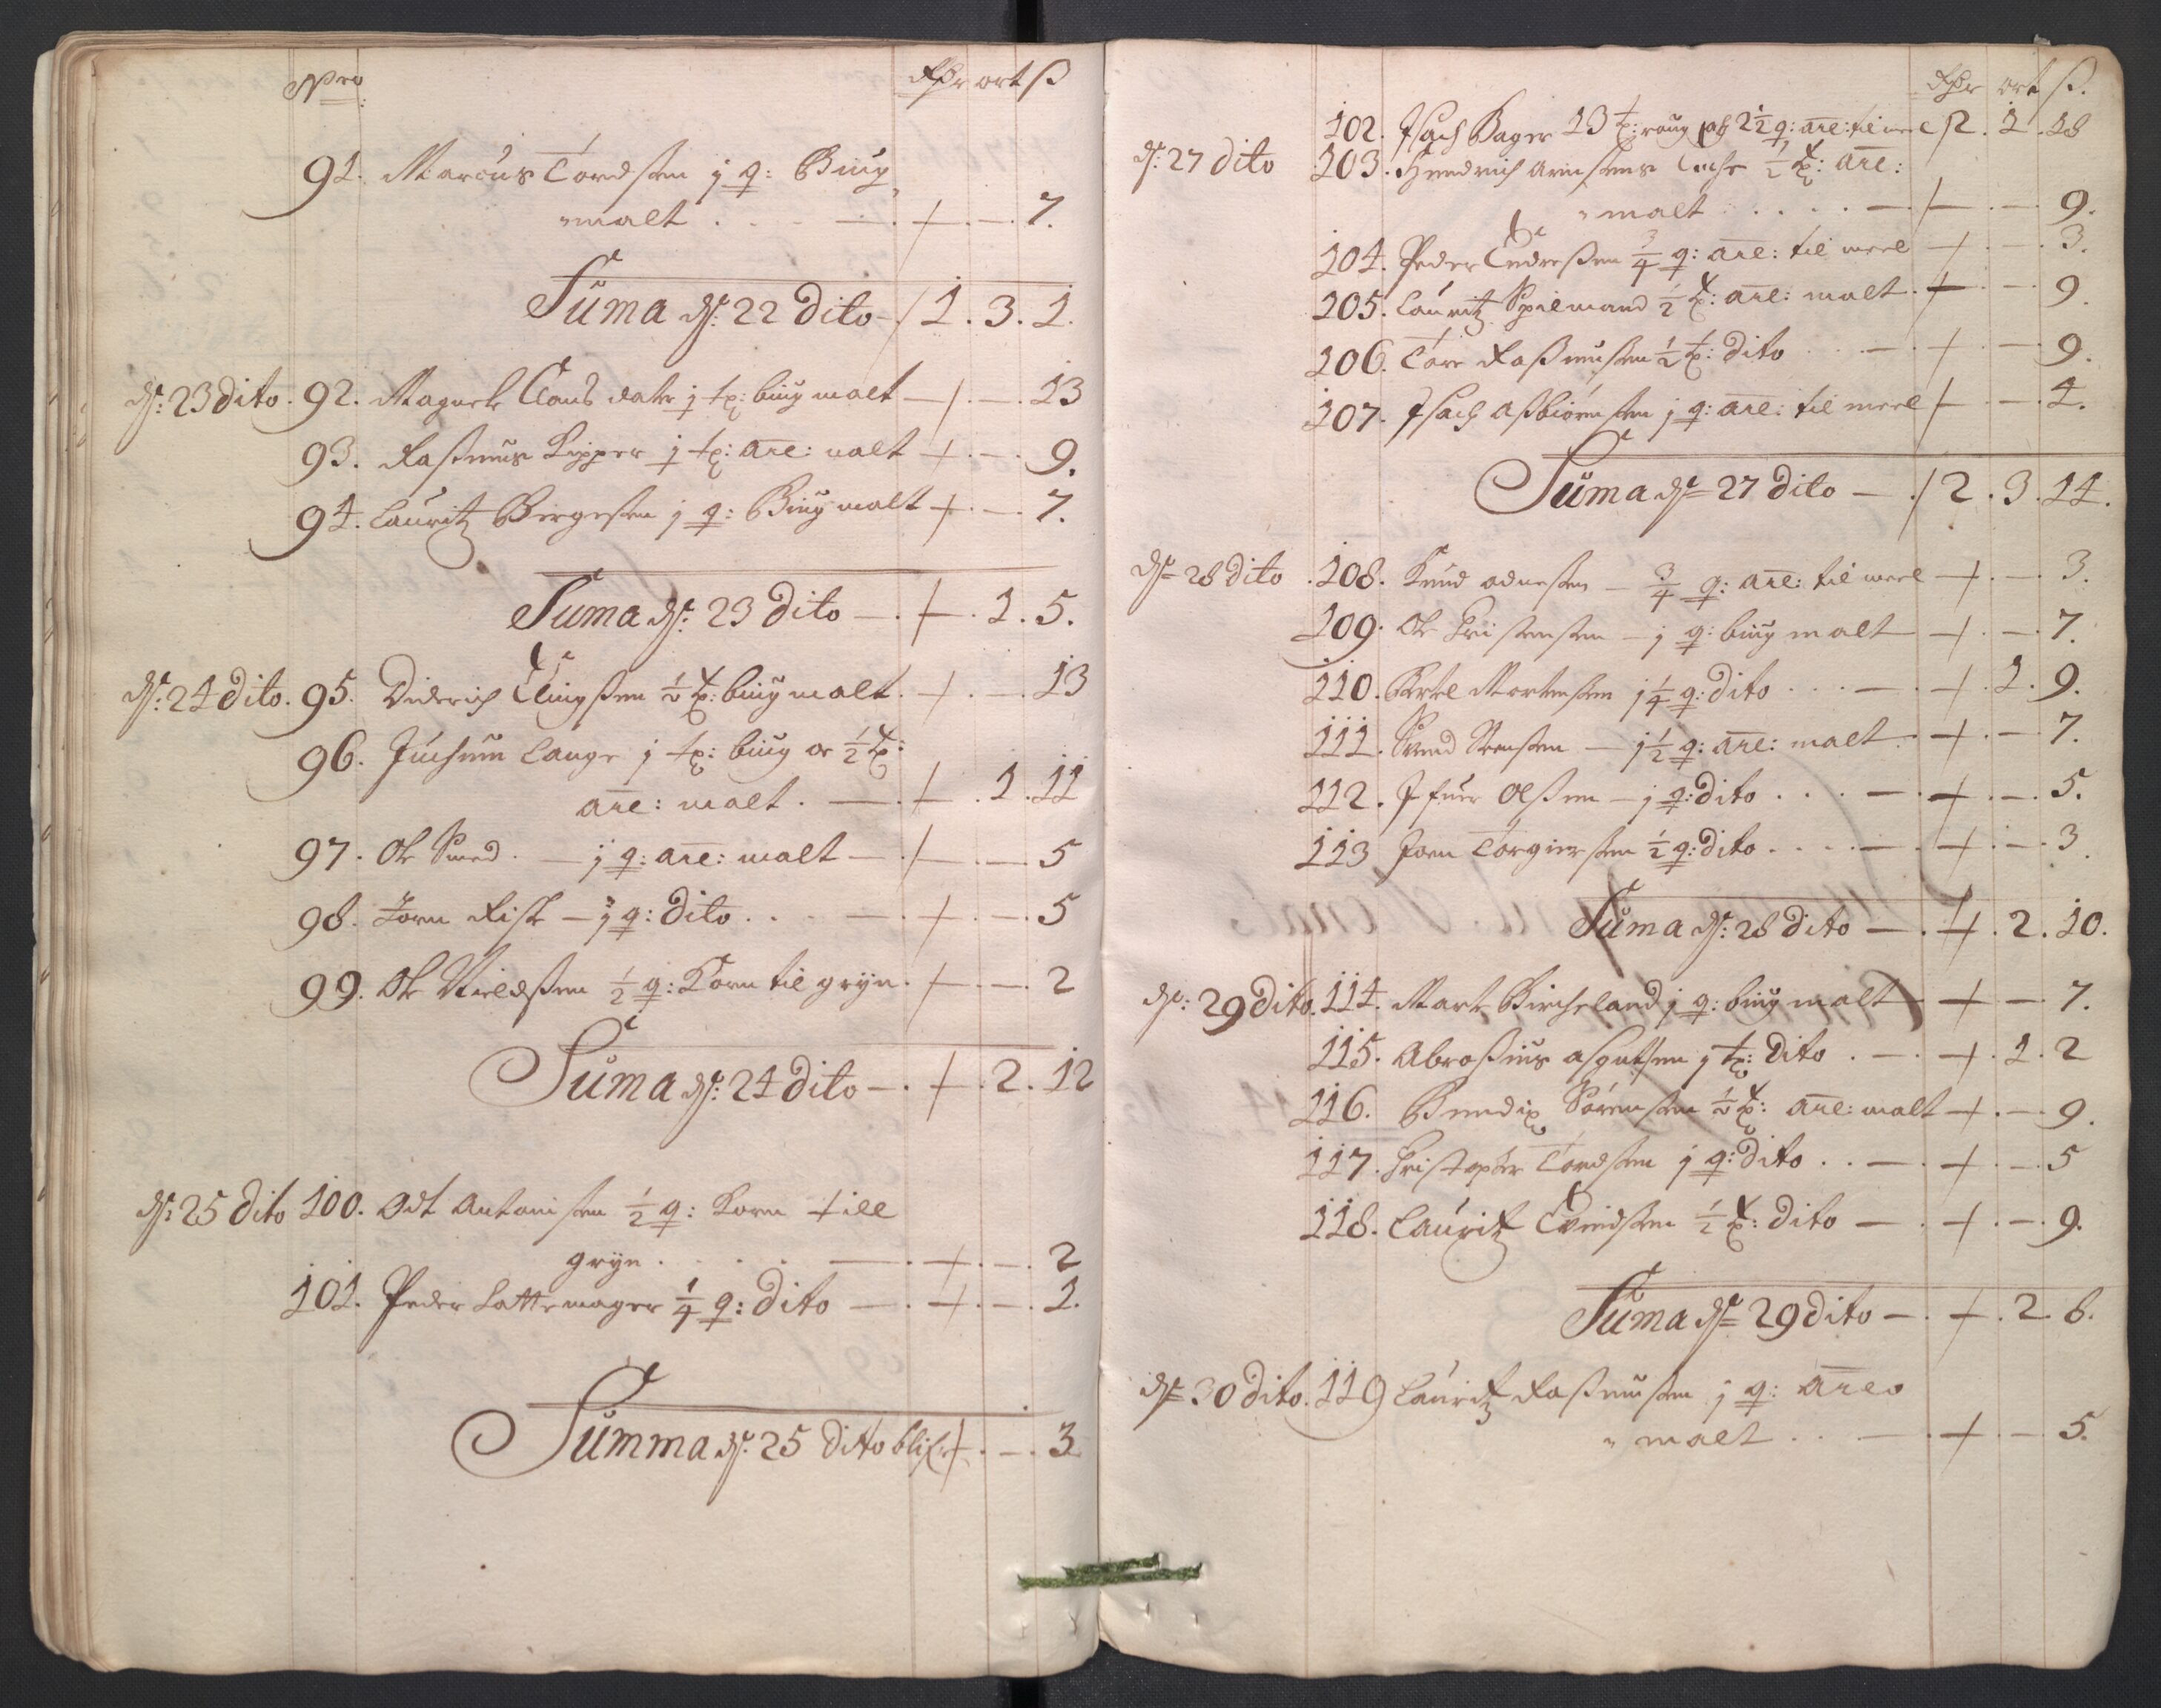 Nro: Rdr ort ß
91. Marcus Tordsen j q: Biug
malt . . . — + — 7.
Suma d: 22 Dito — / 1 . 3 . 1.
d: 23 dito. 92. Magnete Claus datr j tp: biug malt — / . — 13
93. Rasmus Kipper j tp: are: malt + . — 9.
94. Lauritz Børgesen j q: Biug malt + . — 7.
Suma d: 23 Dito — . + . 1 . 5.
d: 24 dito. 95. Diderich ½ tp: biug malt. + . — 13
96. Jochum Lange j tp: biug oc ½ tp:
are: malt . — . + . 1 . 11
97. Ole Smed . — j q: are: malt — . + . — 5
98. Torn Fisk — j q: dito . . . — . + . — . 5
99. Ole Nieldsen ½ q: Korn til gryn . + . — . 2
Suma d: 24 dito — . + . 2 . 12
d: 25 dito 100. Odt Antonisen ½ q: Korn till
gryn . . . . — . + . — . 2
101. Peder Hattemager ¼ q: dito — . + . — . 1.
Summa d: 25 Dito blif: + . — . 3
Rdr ort ß.
102. Isach Bager 13 tp: roug oc 2½ q: are: til meel / 2 . 1 . 18
d: 27 dito 103. Hendrich Arensens ½ tp: are:
malt . . . . — . + . — . 9.
104. Peder Endresen ¾ q: are: til meel — + . — . 3.
105. Lauritz Spilemand ½ tp: are: malt . + . — . 9.
106. Tore Rasmusen ½ tp: dito . . . — . + . — . 9.
107. Isach Asbiørnsen j q: are: til meel + — . 4.
Suma d: 27 dito — . / 2 . 3 . 14.
d: 28 dito . 108. Knud Odnesen — ¾ q: are: til meel — + . — . 3.
109. Ole Christensen — j q: biug malt — + . — . 7.
110. Bertel Mortensen j¼ q: dito . . . — . + . 1 . 9.
111. Svend Stensen — j½ q: are: malt . + . — . 7.
112. Ifuer Olsen — j q: dito . . . — . + . — . 5.
113 Joen Torgiersen ½ q: dito . . . . — . + . — . 3.
Suma d: 28 dito — . + . 2 . 10.
d: 29 Dito. 114. Marte Bircheland j q: biug malt — + — . 7.
115. Abrosius Asgutsen j tp: dito . — . + . 1 . 2
116. Bendix Sørensen ½ tp: are: malt + . — . 9.
117. Christopher Tordsen j q: dito . . — . + . — . 5
118. Lauritz Evindsen ½ tp: dito — . + . — . 9.
Suma d: 29 dito — . + . 2 . 8.
d: 30 dito. 119 Lauritz Rasmusen j q: are
malt . . . — . + . — . 5.